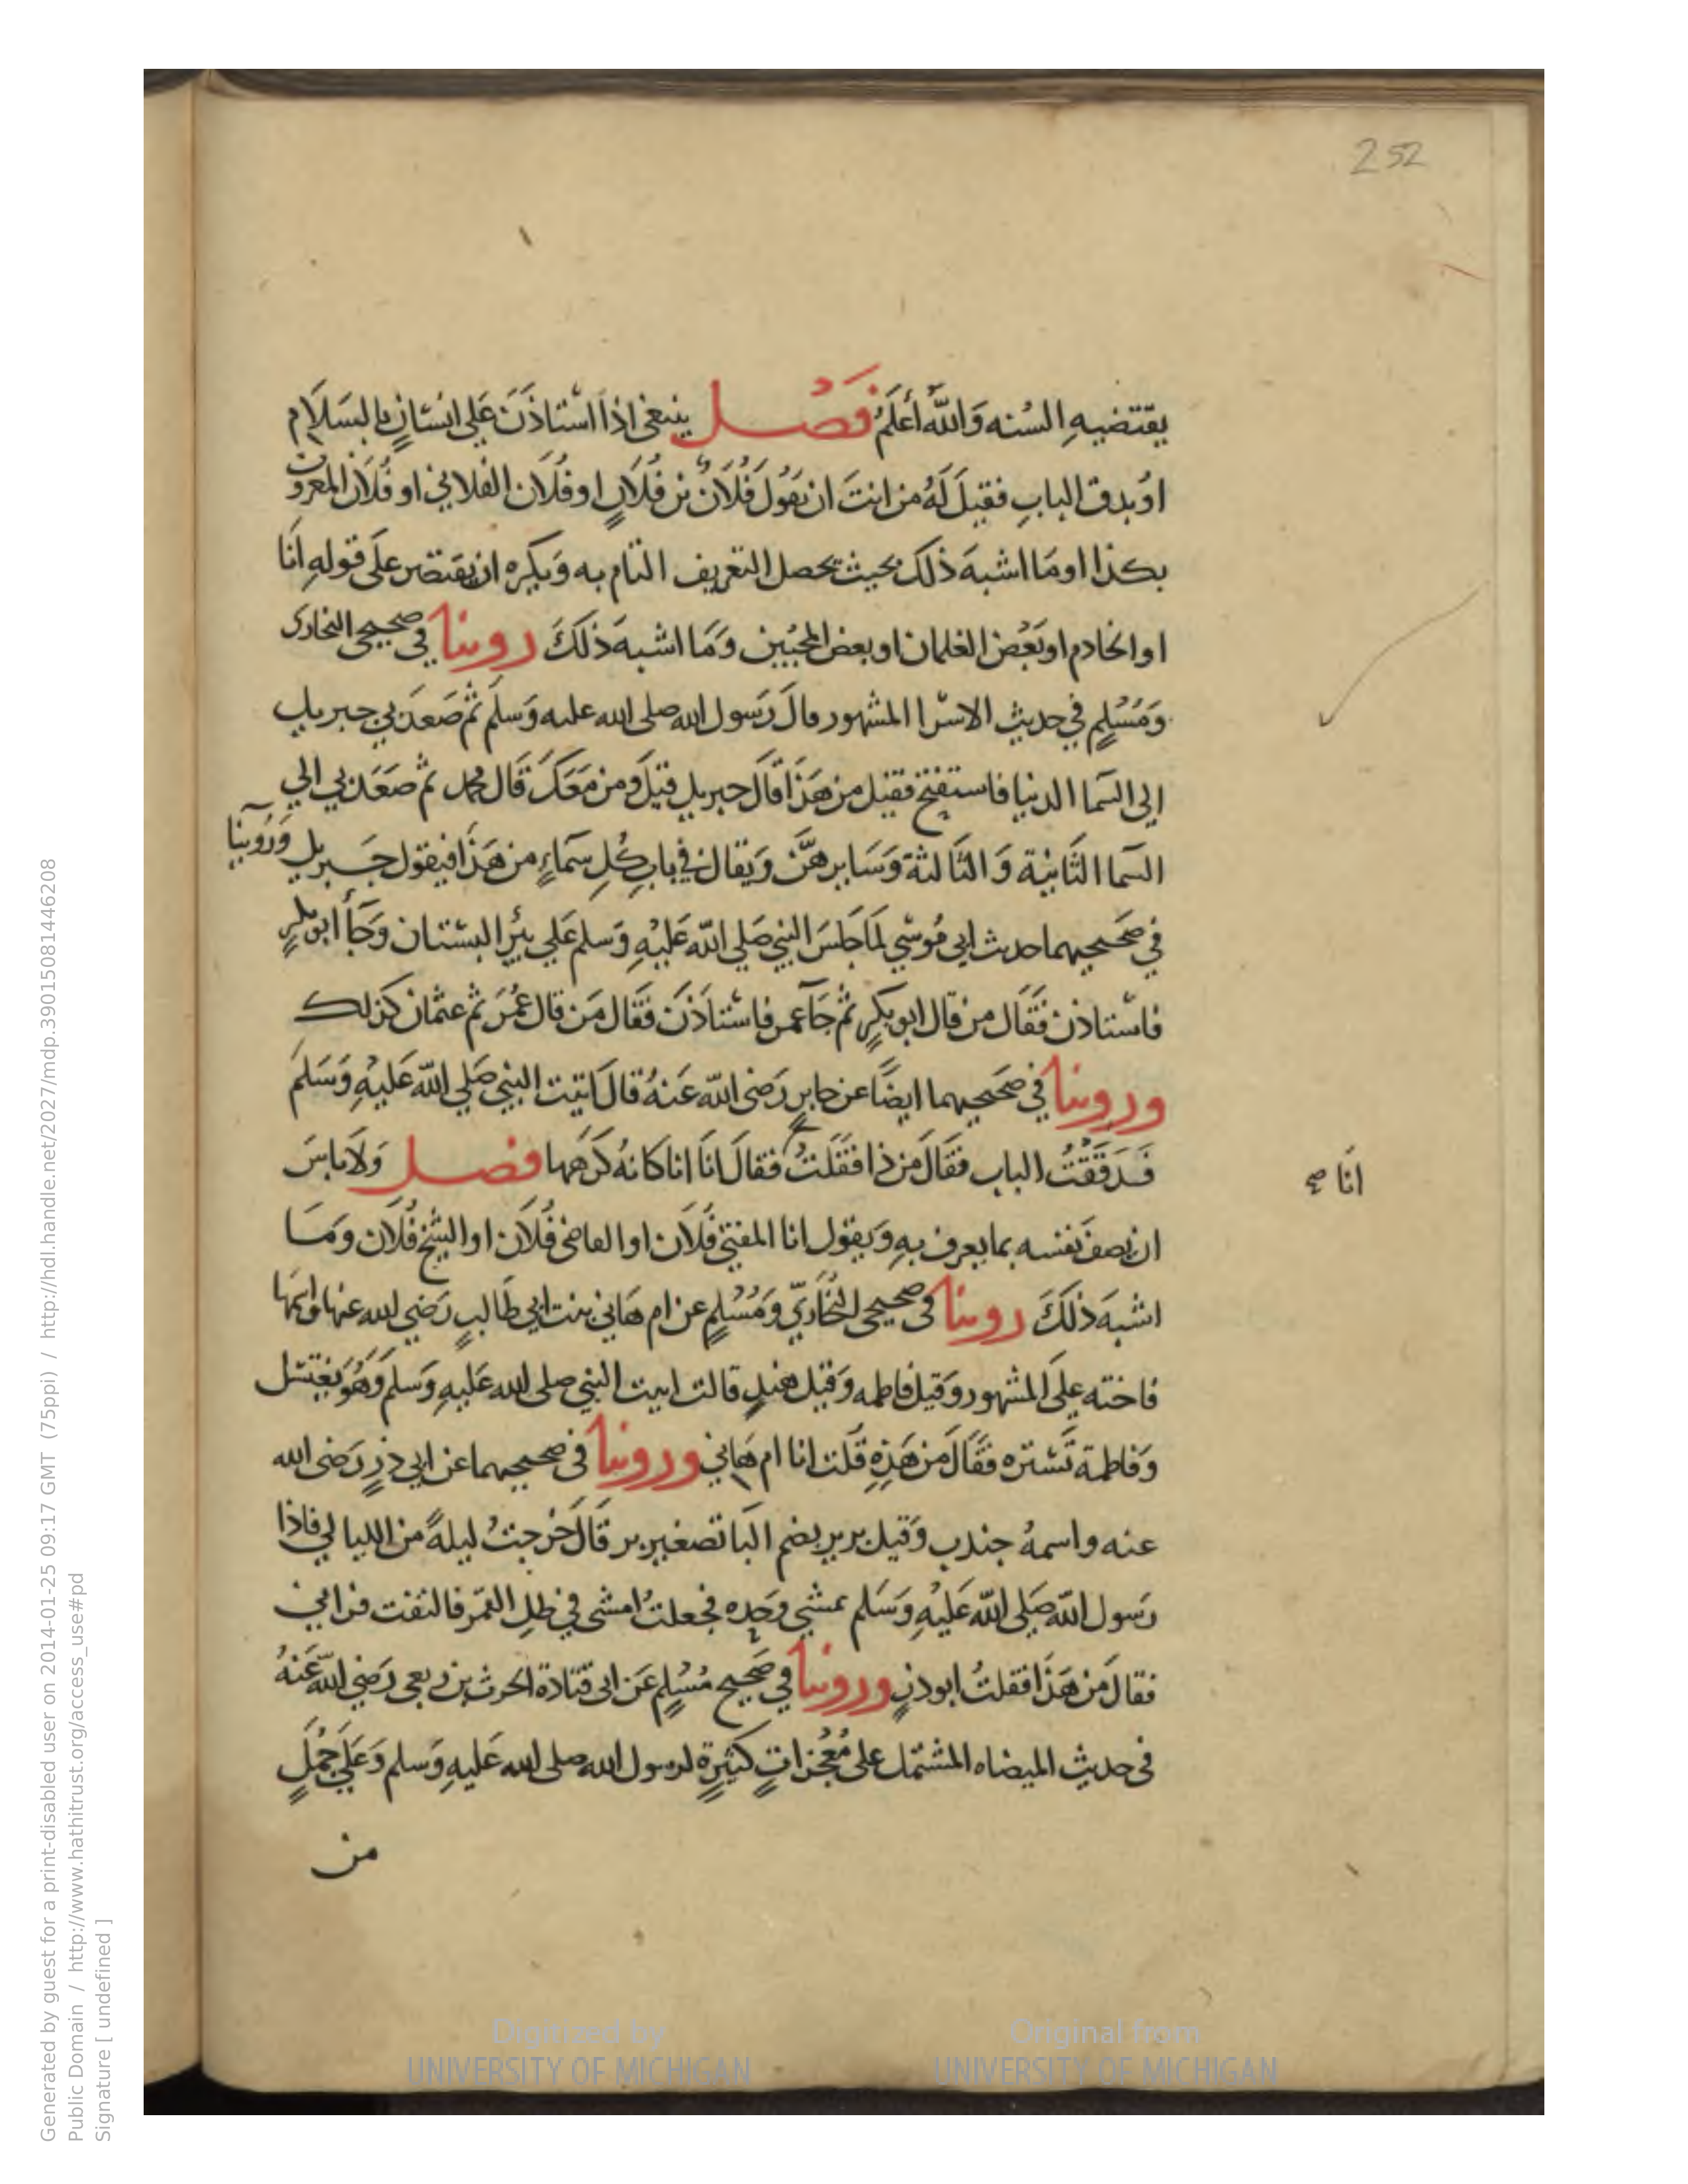 252
يقتضيه السنه وَاللّه أعلَمُ فَصْل ينبغى اذا استاذَنَ عَلى انسَانٍ بالسَلاَم
اوُ بدق الباب فقيلَ لَهُ من انتَ ان يَقُولَ فُلاَنٌ بن فُلاَنٍ او فُلاَن الفلاني او فُلاَن المعروف
بكذا او مَا اشبهَ ذلكَ بحيث يحصل التعريف التام به وَيكره ان يقتصر علَى قوله انَا
او الخادم او بَعْض الغلمان او بعض المحبّين وَمَا اشبهَ ذلكَ روينا في صحيحى البخارى
وَمُسْلمٍ في حديث الاسرا المشهور قالَ رَسول الله صلى الله عليه وَسلَم ثُم صَعدَ بي جبريل
الى السما الدنيا فاستفتح فقيل من هَذَا قالَ جبريل قيلَ ومن مَعَكَ قَال محمد ثم صَعَدَ بي الي
السما الثَانيَة وَ الثَالثة وَسَايرهنَّ وَيقال في باب كُل سَماءٍ من هَذَا فيقول جَبريل وَرَوينا
في صَحيحيهما حديث ابي مُوسَي لمَا جَلسَ النبي صَلي اللّه عَليْهِ وَسلم عَلي بئْر البستان وَجَأ ابو بكرٍ
فاستاذن فقَال من قال ابو بكرٍ ثُم جَآ عمر فاستَاذَنَ فقَال مَن قال عُمَرَ ثم عثمان كذلك
وروينا في صَحيحيهما ايضًا عن جابرٍ رَضى اللّه عَنهُ قالَ اتيت النبي صَلي اللّه عَليْهِ وَسَلمَ
فَدَقَقْتُ الباب فقَالَ مَن ذا فقَلتُ فقالَ انَا انا كانهُ كَرهَها فصل وَلاَ باسَ
انَا صح
ان يصفَ نفسه بما يعرف به وَيقول انا المفتي فُلاَن او القاضى فُلاَن او الشيخ فُلاَن وَمَا
اشبهَ ذلكَ روينا فى صحيحى البُخاريّ وَمُسْلمٍ عن ام هَاني بنت ابي طَالبٍ رَضي الله عنها واسمها
فاخته علَى المشهور وَقيل فاطمه وَقيل هندٍ قالت اتيت النبي صلى الله عَليهِ وَسلَم وَهُوَ يغتسل
وَفاطمة تَستره فقَالَ مَن هَذِهِ قُلت انا ام هَاني وروينا فى صحيحيهما عن ابي ذرٍ رَضى الله
عنه واسمهُ جندب وَقيل برير بضم البَا تصغير بر قالَ خرجتُ ليلةً من الليالي فاذا
رَسول اللّه صَلي اللّه عَليْهِ وَسَلم يمشي وحده فجعلتُ امشى في ظل القمر فالتفت فرانى
فقالَ مَن هَذَا فقلتُ ابوذرٍ وروينا في صَحيح مُسْلمٍ عَن ابى قتادة الحرث بن ربعى رَضي اللّه عَنهُ
فى حديث الميضاه المشتمل على مُعْجزاتٍ كثيرةٍ لرسول الله صلى الله عَليهِ وَسلم وَعَلَي جُمَلٍ
من
Generated by guest for a print-disabled user on 2014-01-25 09:17 GMT (75ppi) / http://hdl.handle.net/2027/mdp.39015081446208
Public Domain / http://www.hathitrust.org/access_use#pd
Signature [ undefined ]
Digitized by
UNIVERSITY OF MICHIGAN
Original from
UNIVERSITY OF MICHIGAN